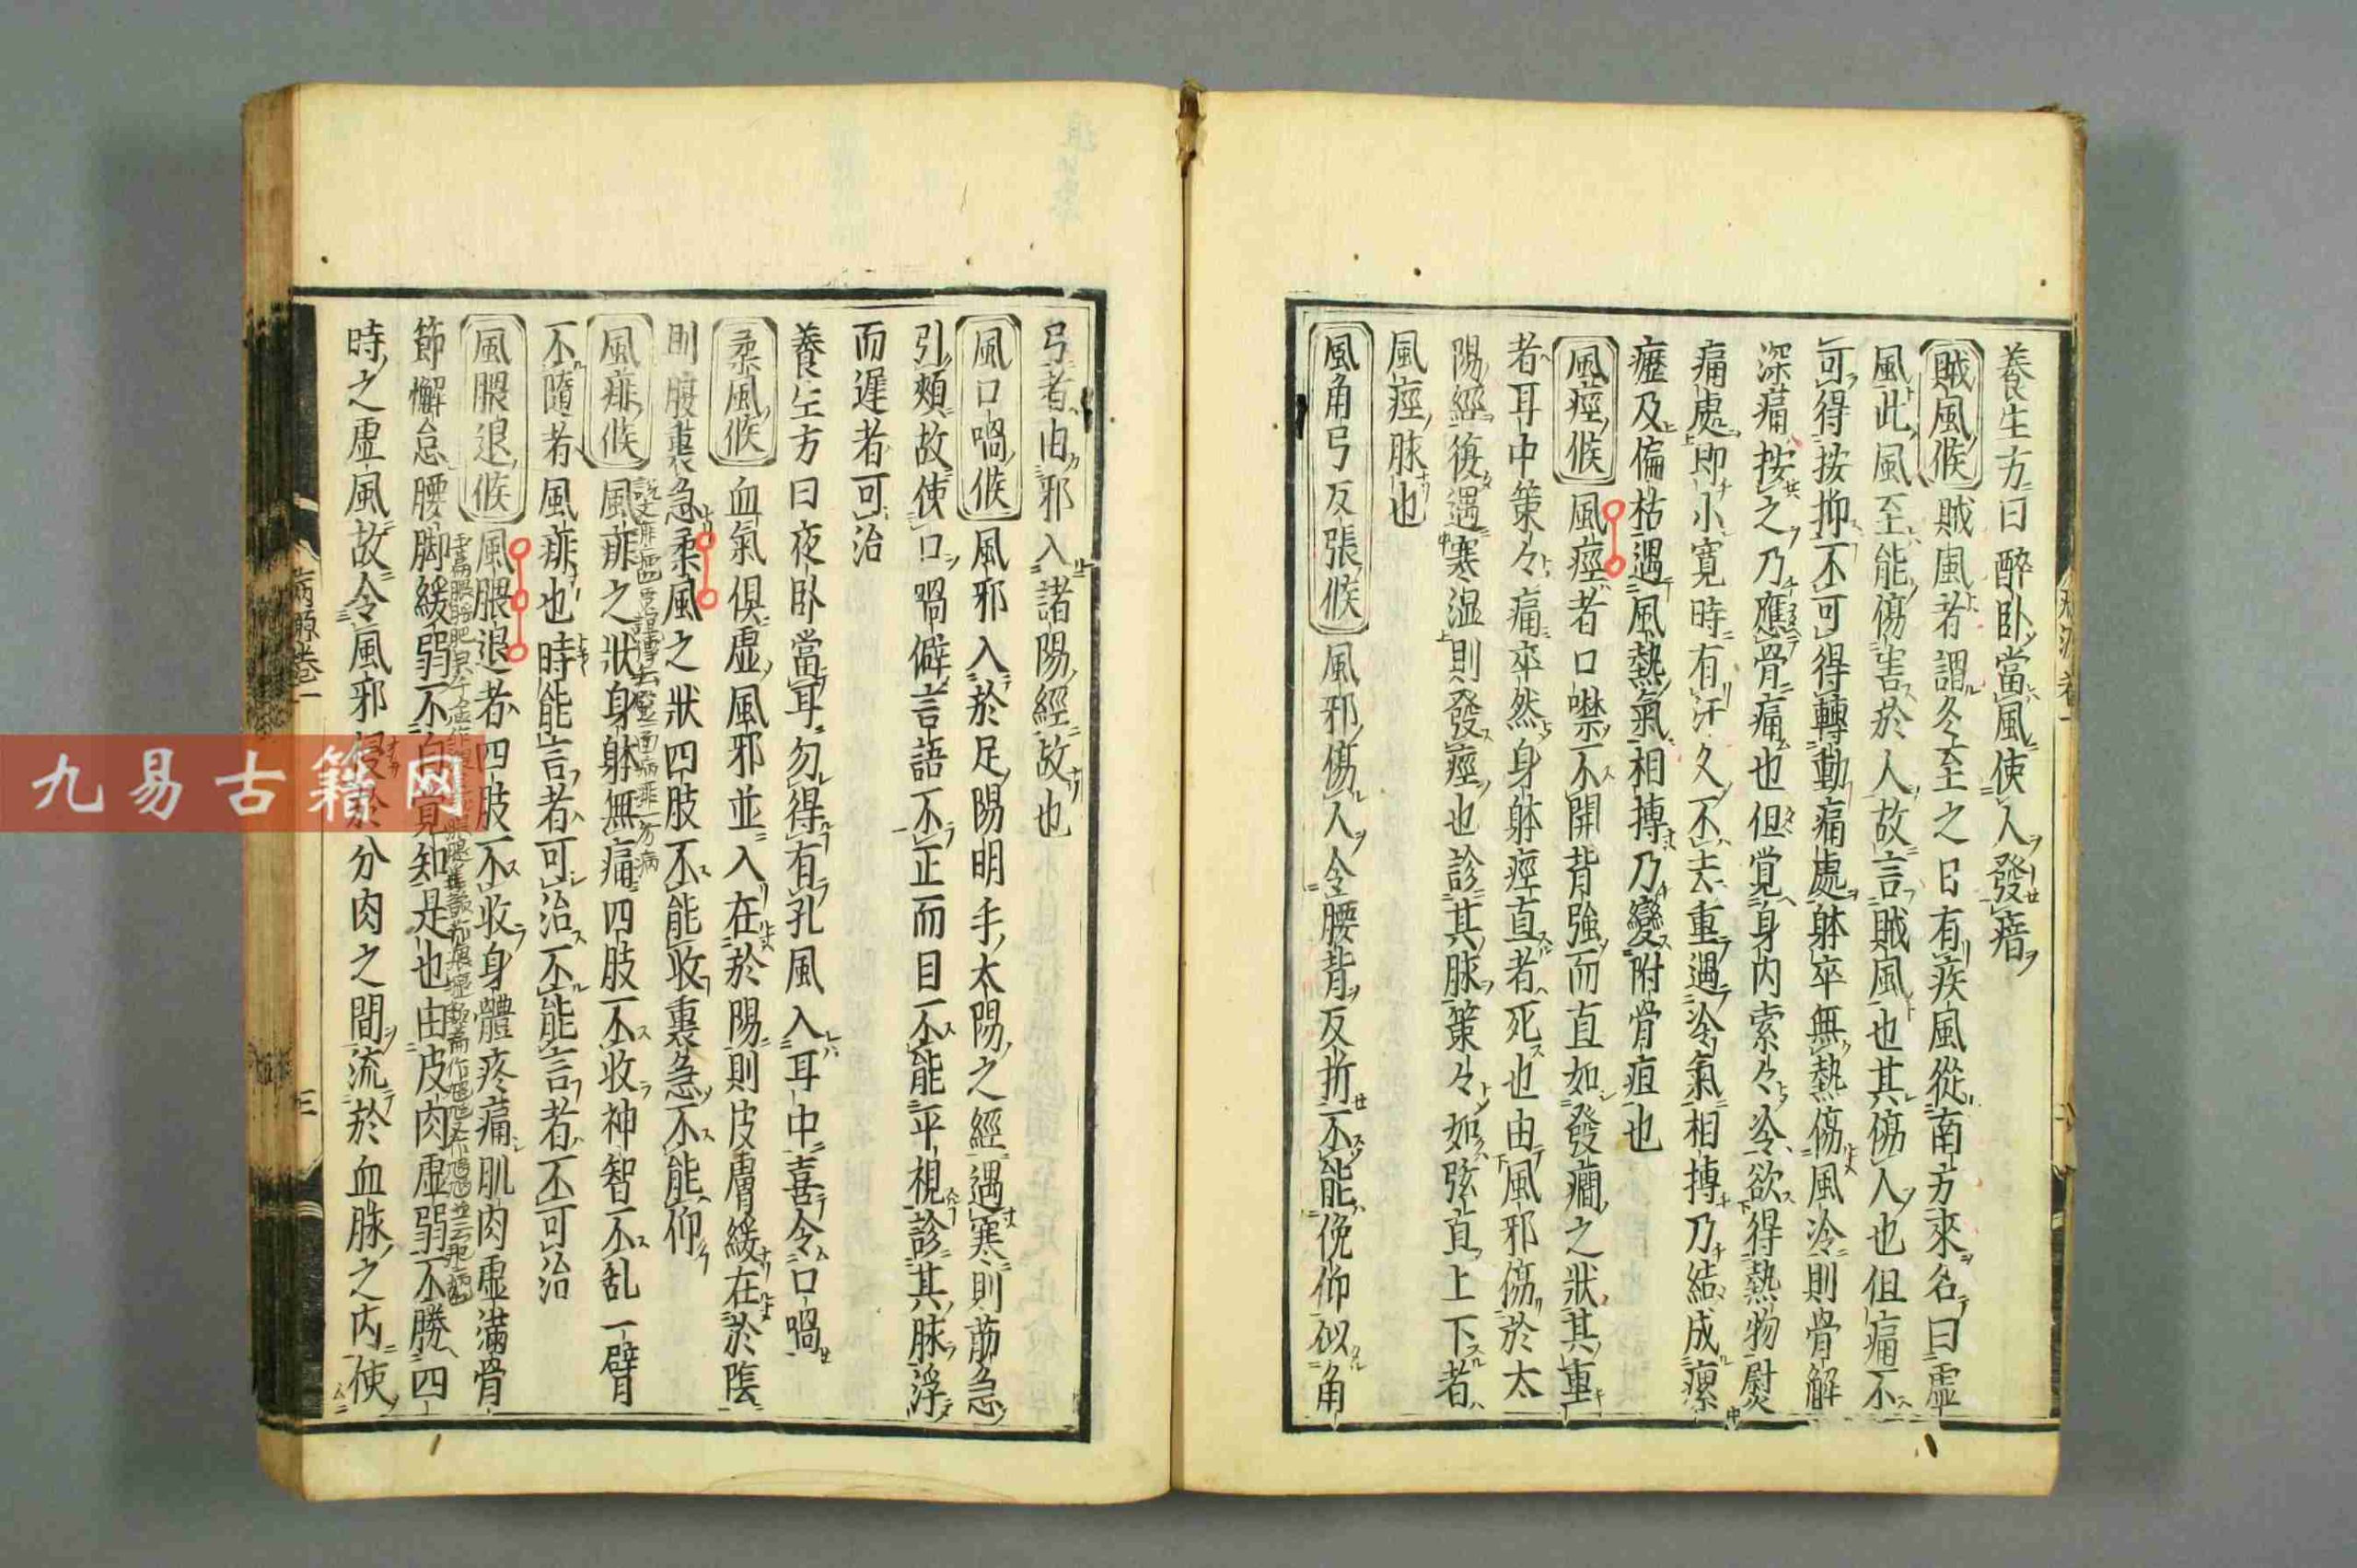 養生方曰醉卧當風使人發瘖
賊風候 賊風者謂冬至之日有疾風從南方來名曰虛
風此風至能傷害於人故言賊風也其傷人也但痛不
可得按抑不可得轉動痛處躰卒無熱傷風冷則骨解
深痛按之乃應骨痛也但覚身内索々冷欲得熱物熨
痛處即小寛時有汗久不去重遇冷氣相搏乃結成瘰
癧及偏枯遇風熱氣相搏乃變附骨疽也
風痙候 風痙者口噤不開背強而直如發癇之狀其重
者耳中策々痛卒然身躰痙直者死也由風邪傷於太
陽經復遇寒湿則發痙也診其脉策々如弦直上下者
風痙脉也
風角弓反張候 風邪傷人令腰背反折不能俛仰似角
弓者由邪入諸陽經故也
風口喎候 風邪入於足陽明手太陽之經遇寒則莭急
引頰故使口喎僻言語不正而目不能平視診其脉浮
而遲者可治
養生方曰夜卧當耳勿得有孔風入耳中喜令口喎
柔風候 血氣俱虛風邪並入在於陽則皮膚緩在於陰
則腹裏急柔風之狀四肢不能收裏急不能仰
風痱候 風痱之狀身躰無痛四肢不收神智不乱一臂
不隨者風痱也時能言者可治不能言者不可治
風腲退候 風腲退者四肢不收身體疼痛肌肉虛滿骨
節懈怠腰脚緩弱不自覚知是也由皮肉虛弱不勝四
時之虛風故令風邪侵於分肉之間流於血脉之内使
病源卷一
三
九易古籍网